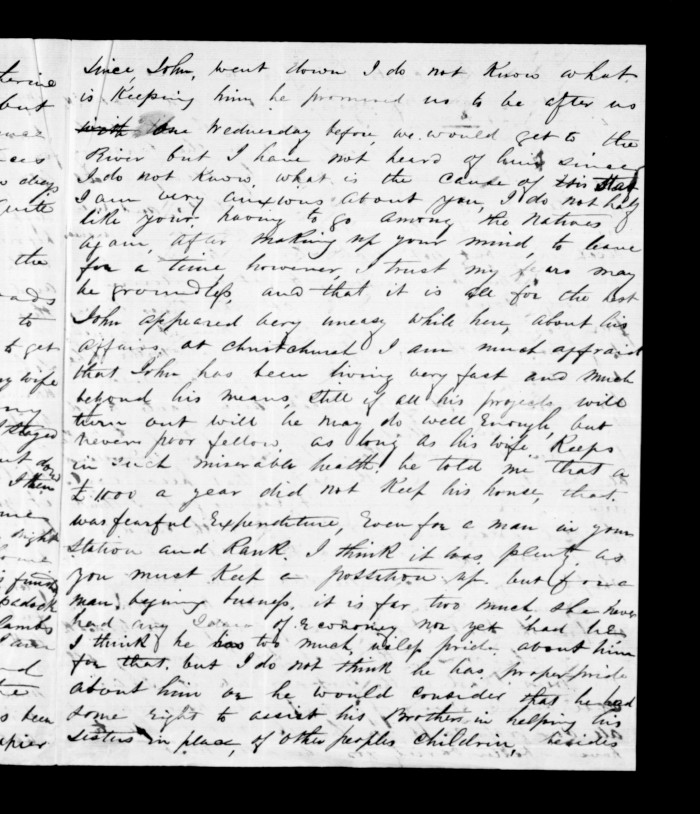 therine
but
ces
days
quite
the
ads
to
to get
my wife
my
I stayed
but do
I then
me
night
come
funds
paddock
lambs
and
the
s been
apier
Since, John, went down I do not Know what
is Keeping him he promised us to be after us
one Wednesday before, we would get to the
River but I have not heard of him since
I do not Know what is the cause of this
I am very anxious about you, I do not
like your having to go among the Natives
again, after making up your mind, to leave
for a time however, I trust my fears may
be groundless, and that it is all for the best
John appeared very uneasy while here, about his
affairs at Christchurch I am much affraid
that John has been living very fast and much
behond his means, still if all his projects will
turn out will he may do well Enough, but
nevers poor fellow, as long as his wife Keeps
in such miserable health, he told me that a
£1000 a year did not Keep his house, that
was fearful Expenditure, Even for a man in your
Station and Rank. I think it was plenty as
you must Keep a possition up. but for a
man, bigining business, it is far two much she never
had any Idea of Economy nor yet had he
I think he has too much, usless pride about him
for that. but I do not think he has proper pride
about him or he would consider that he had
some right to assist his Brothers in helping his
Sisters in place, of other peoples Childrin, besides